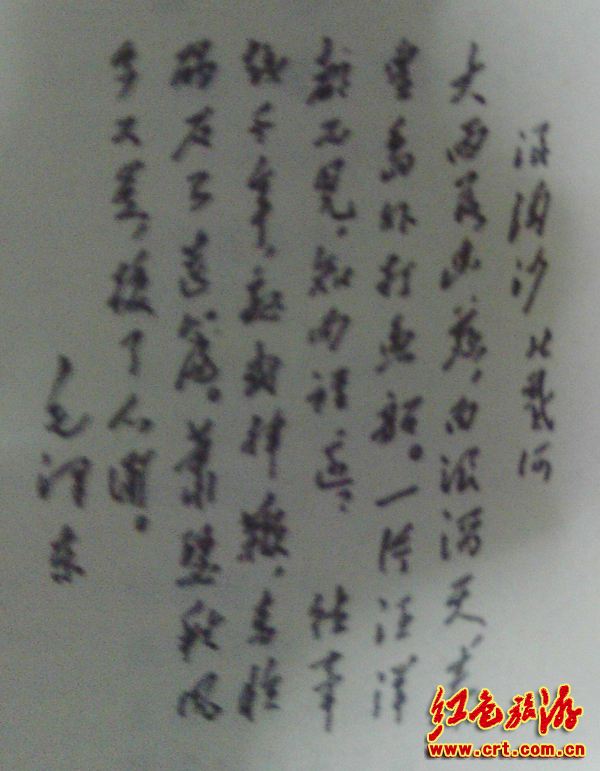 浪淘沙 北戴河
大雨落幽燕,白浪滔天,秦
皇岛外打鱼船。一片汪洋
都不见,知向谁边? 往事
越千年,魏武挥鞭,东临
碣石有遗篇。萧瑟秋风
今又是,换了人间。
毛泽东
红色旅游
www.crt.com.cn